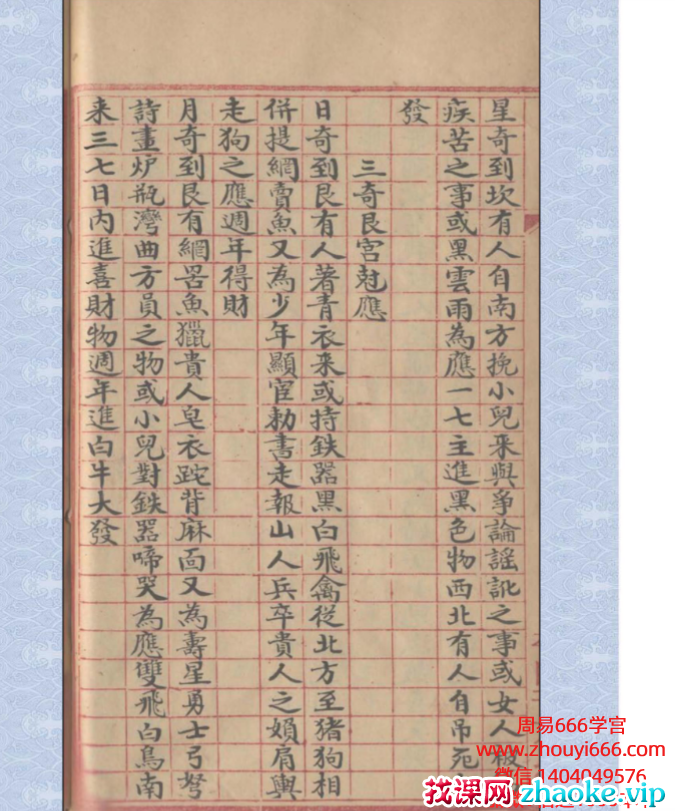 星奇到坎有人自南方挽小兒来與爭論謡訛之事或女人被
疾苦之事或黑雲雨為應一七主進黑色物西北有人自吊死
發
三奇艮宮尅應
日奇到艮有人著青衣来或持鉄器黑白飛禽從北方至猪狗相
併提網賣魚又為少年顯宦勅書走報山人兵卒貴人之媍肩輿
走狗之應週年得財
月奇到艮有網罟魚獵貴人皂衣跎背麻面又為壽星勇士弓弩
詩畫炉瓶灣曲方員之物或小兒對鉄器啼哭為應雙飛白鳥南
来三七日内進喜財物週年進白牛大發
周易666学宫
www.zhouyi666.com
微信 1404049576
找课网 zhaoke.vip